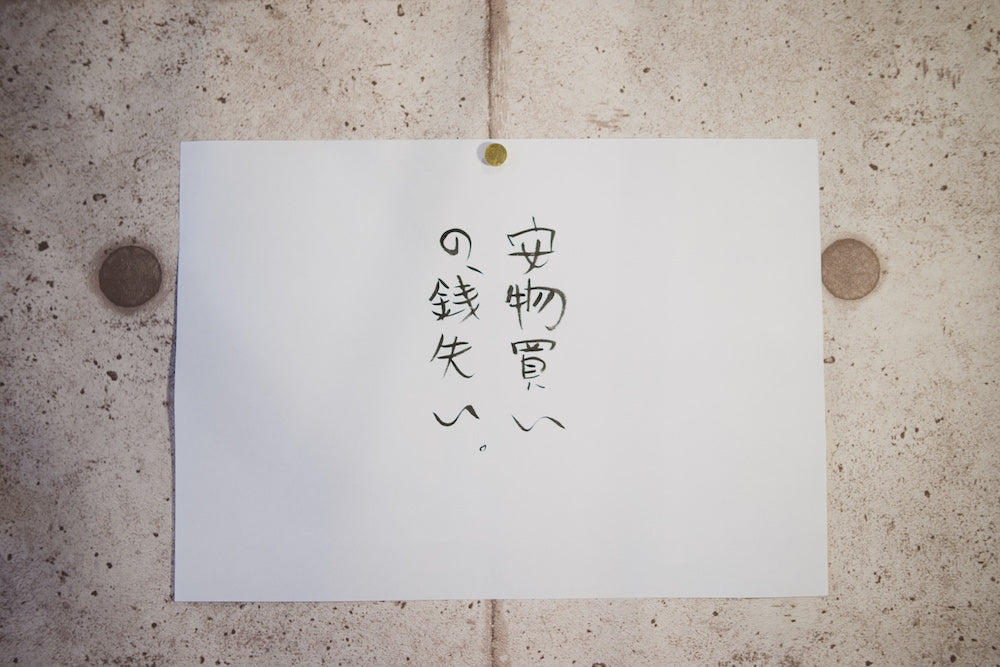 安物買い
の、銭失い。